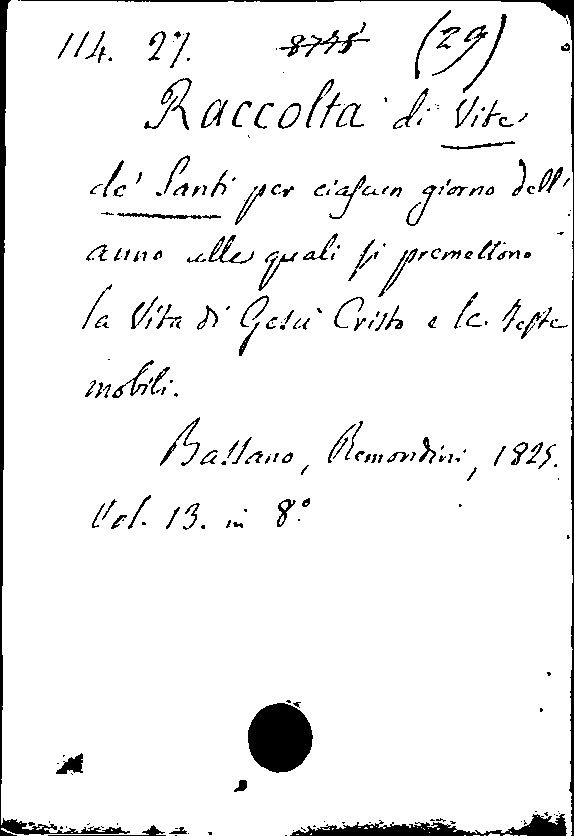 114. 27. 8745 (29)
Raccolta di Vite
de' Santi per ciascun giorno dell'
anno alle quali si premettono
la Vita di Gesù Cristo e le Feste
mobili.
Bassano, Remondini, 1825.
Vol. 13. in 8.°